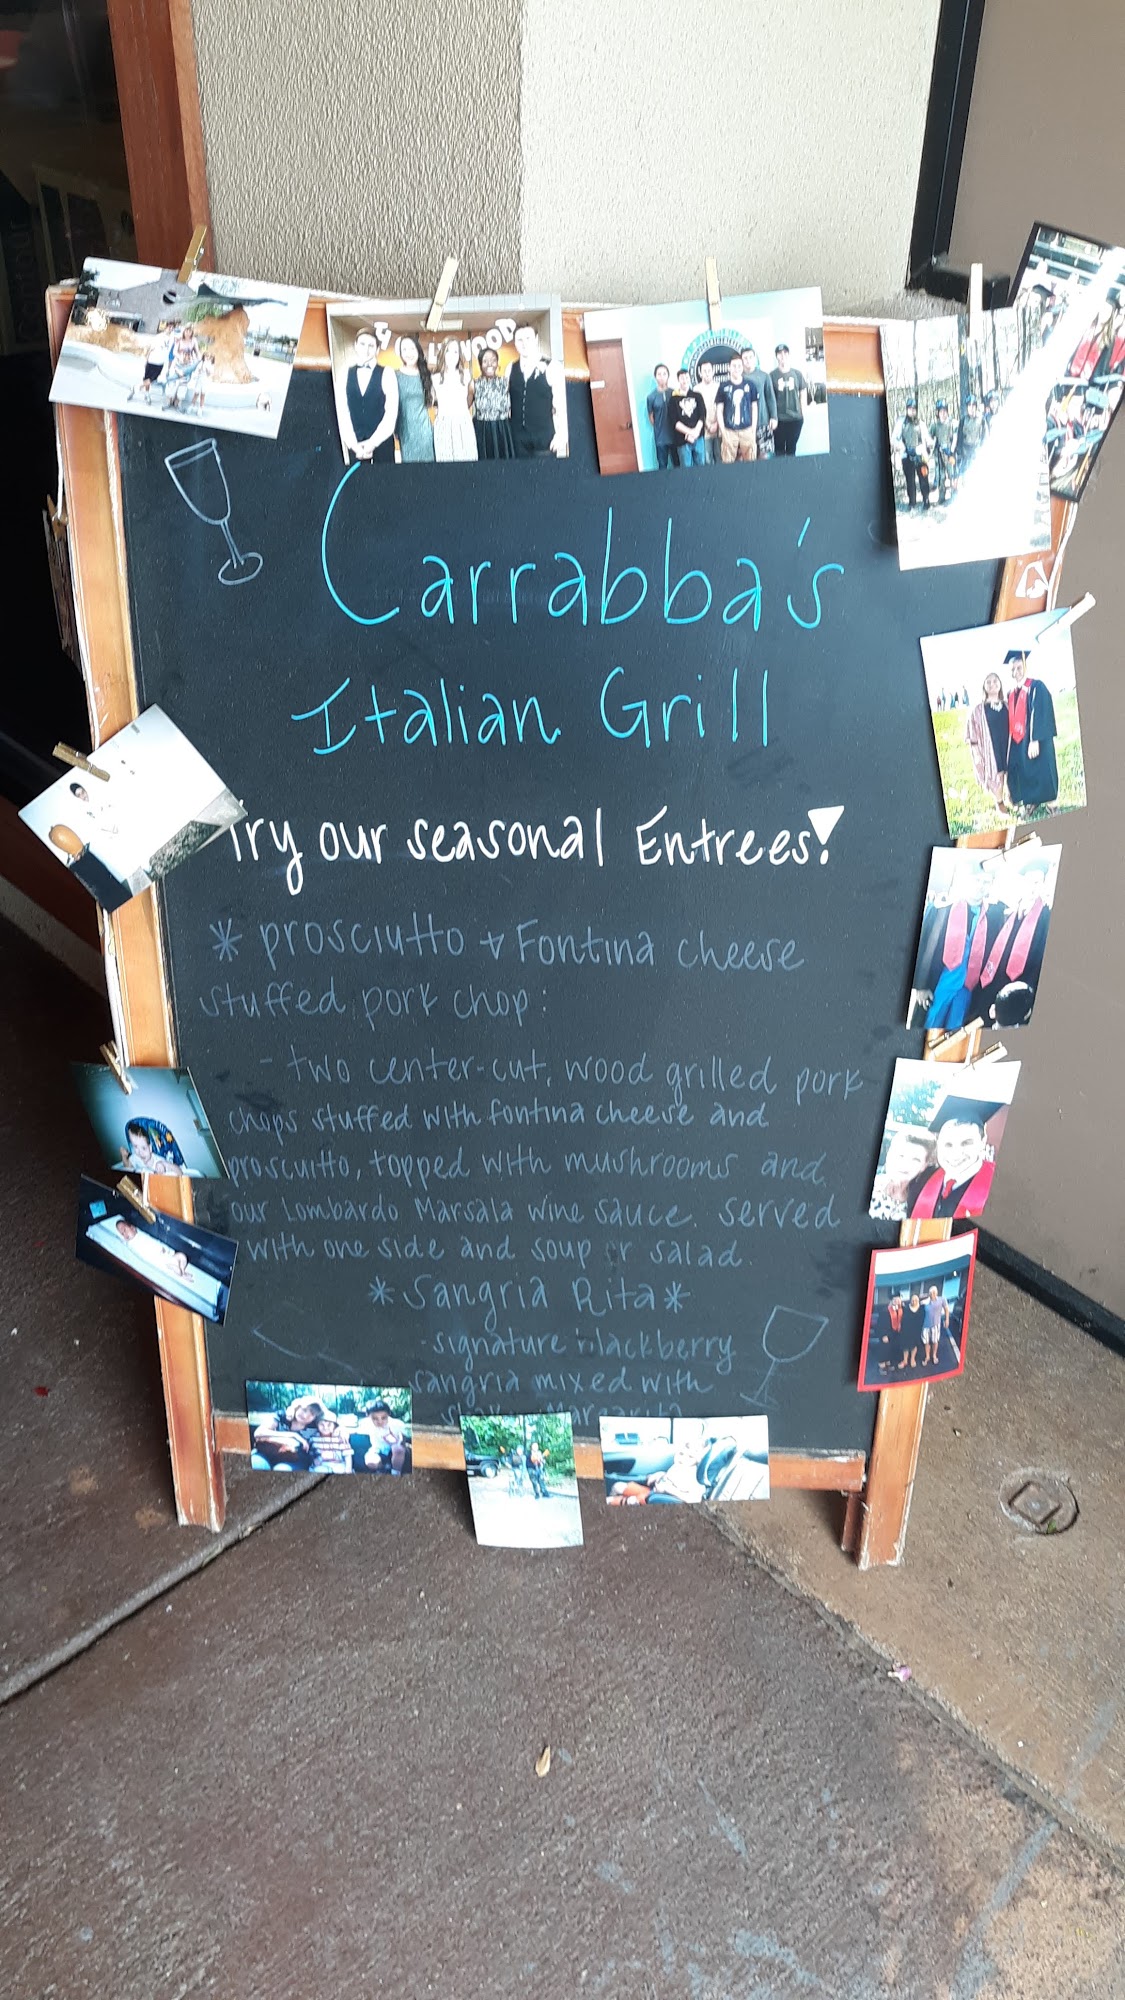 Carrabba's
Italian Grill
Try our seasonal Entrees!
* Prosciutto + Fontina cheese
stuffed pork chop:
- two center-cut, wood grilled pork
chops stuffed with fontina cheese and
proscuitto, topped with mushrooms and
our Lombardo Marsala wine sauce. served
with one side and soup or salad.
*Sangria Rita*
-signature blackberry
sangria mixed with
Margarita